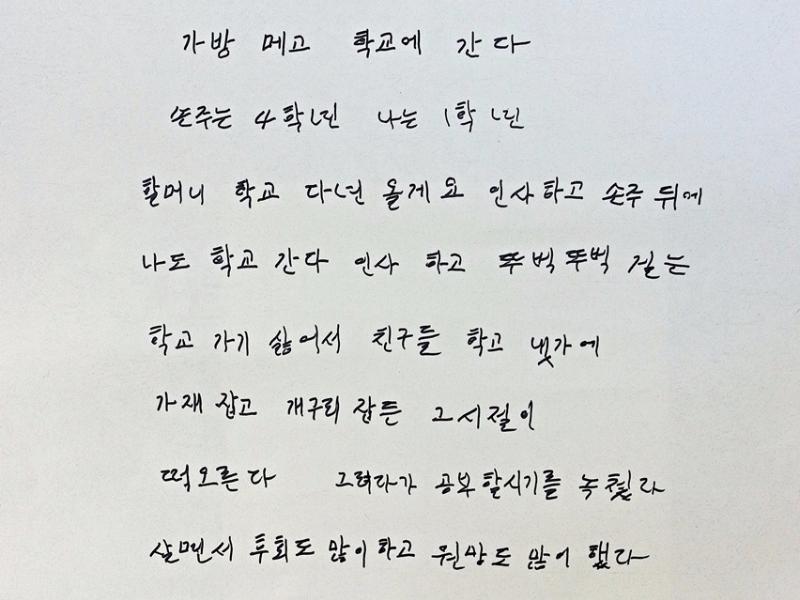 가방 메고 학교에 간다
손주는 4학년 나는 1학년
할머니 학교 다녀 올게요 인사하고 손주 뒤에
나도 학교 간다 인사 하고 뚜벅뚜벅 걷는
학교 가기 싫어서 친구들 학고 냇가에
가재 잡고 개구리 잡든 그시절이
떠오른다 그러다가 공부할시기를 놓쳤다
살면서 후회도 많이하고 원망도 많이 했다